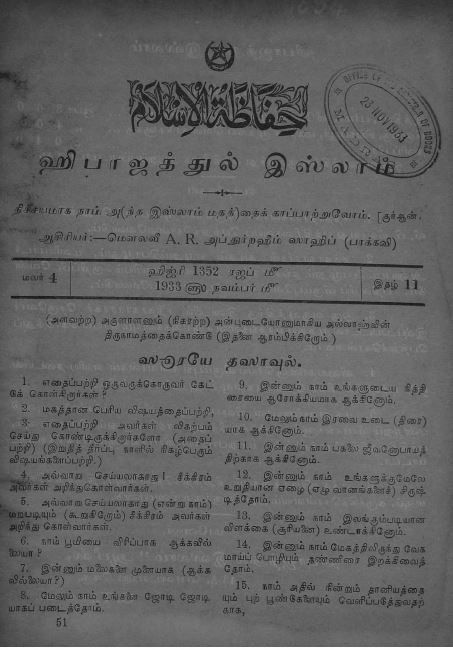 حفاظة الاسلام
OFFICE OF
OF BOOKS
28 NOV 1963
ஹிபாஜத்துல் இஸ்லாம்
நிச்சயமாக நாம் அ(ந்த இஸ்லாம் மதத்)தைக் காப்பாற்றுவோம். [குர்ஆன்.
ஆசிரியர்:—மௌலவீ A. R. அப்துர்றஹீம் ஸாஹிப் (பாக்கவி)
மலர் 4
ஹிஜ்ரி 1352 ரஜப் மீ
1933 ௵ நவம்பர் மீ
இதழ் 11
(அளவற்ற) அருளாளனும் (நிகரற்ற) அன்புடையோனுமாகிய அல்லாஹ்வின்
திருநாமத்தைக்கொண்டே (இதனை ஆரம்பிக்கிறேம்)
ஸூரயே தஸாவுல்.
1. எதைப்பற்றி ஒருவருக்கொருவர் கேட்
டுக் கொள்கிறார்கள்?
2. மகத்தான பெரிய விஷயத்தைப்பற்றி,
3. எதைப்பற்றி அவர்கள் விகற்பம்
செய்து கொண்டிருக்கிறார்களோ (அதைப்
பற்றி) (இறுதித் தீர்ப்பு நாளில் நிகழ்பெரும்
விஷயங்களைப்பற்றி.)
4. அவ்வாறு செய்யலாகாது! சீக்கிரம்
அவர்கள் அறிந்துகொள்வார்கள்.
5. அவ்வாறு செய்யலாகாது (என்று நாம்)
மறுபடியும் (கூறுகிறோம்) சீக்கிரம் அவர்கள்
அறிந்து கொள்வார்கள்.
6. நாம் பூமியை விரிப்பாக ஆக்கவில்
லையா?
7. இன்னும் மலைகளை முளையாக (ஆக்க
வில்லையா?)
8. மேலும் நாம் உங்களை ஜோடி ஜோடி
யாகப் படைத்தோம்.
51
9. இன்னும் நாம் உங்களுடைய நித்தி
ரையை ஆரோக்கியமாக ஆக்கினோம்.
10. மேலும் நாம் இரவை உடை (திரை)
யாக ஆக்கினோம்.
11. இன்னும் நாம் பகலை ஜீவனோபாயத்
திற்காக ஆக்கினோம்.
12. இன்னும் நாம் உங்களுக்குமேலே
உறுதியான ஏழை (எழு வானங்களைச்) சிருஷ்
டித்தோம்.
13. இன்னும் நாம் இலங்கும்படியான
விளக்கை (சூரியனை) உண்டாக்கினோம்.
14. இன்னும் நாம் மேகத்திலிருந்து வேக
மாய்ப் பொழியும் தண்ணீரை இறக்கிவைத்
தோம்.
15. நாம் அதில் நின்றும் தானியத்தை
யும் புற் பூண்களையும் வெளிப்படுத்துவதற்
காக,